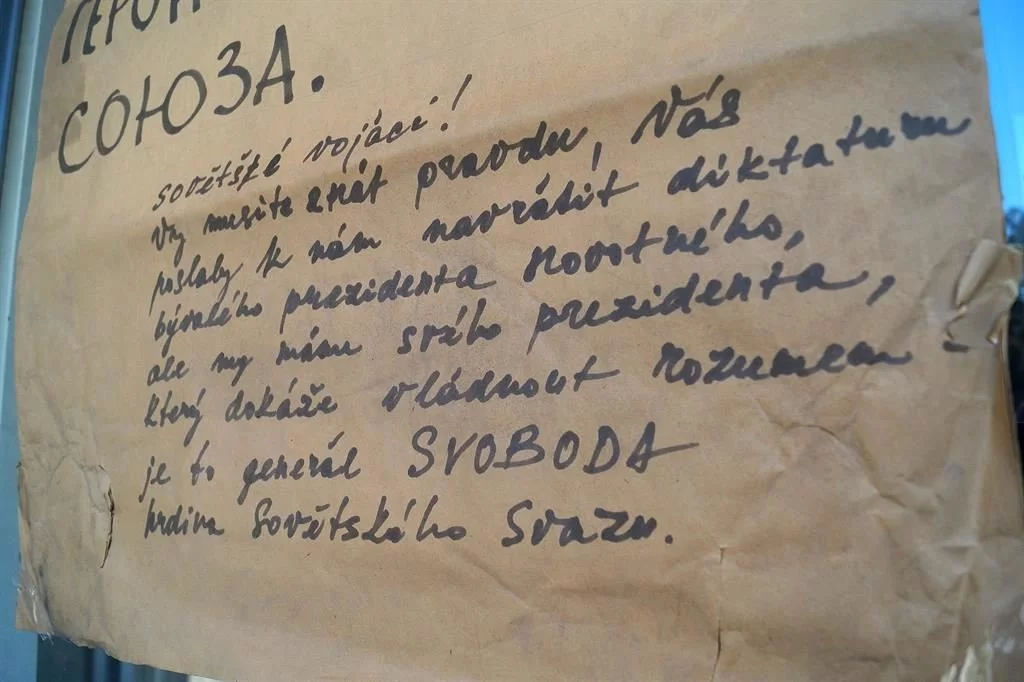 ГЕРОЙ
СОЮЗА.
sovětště vojáci!
Vy musíte znát pravdu, Vás
poslaly k nám navrátit diktaturu
bývalého prezidenta Novotného,
ale my máme svého prezidenta,
který dokáže vládnout rozumem -
je to generál SVOBODA
hrdina Sovětského Svazu.